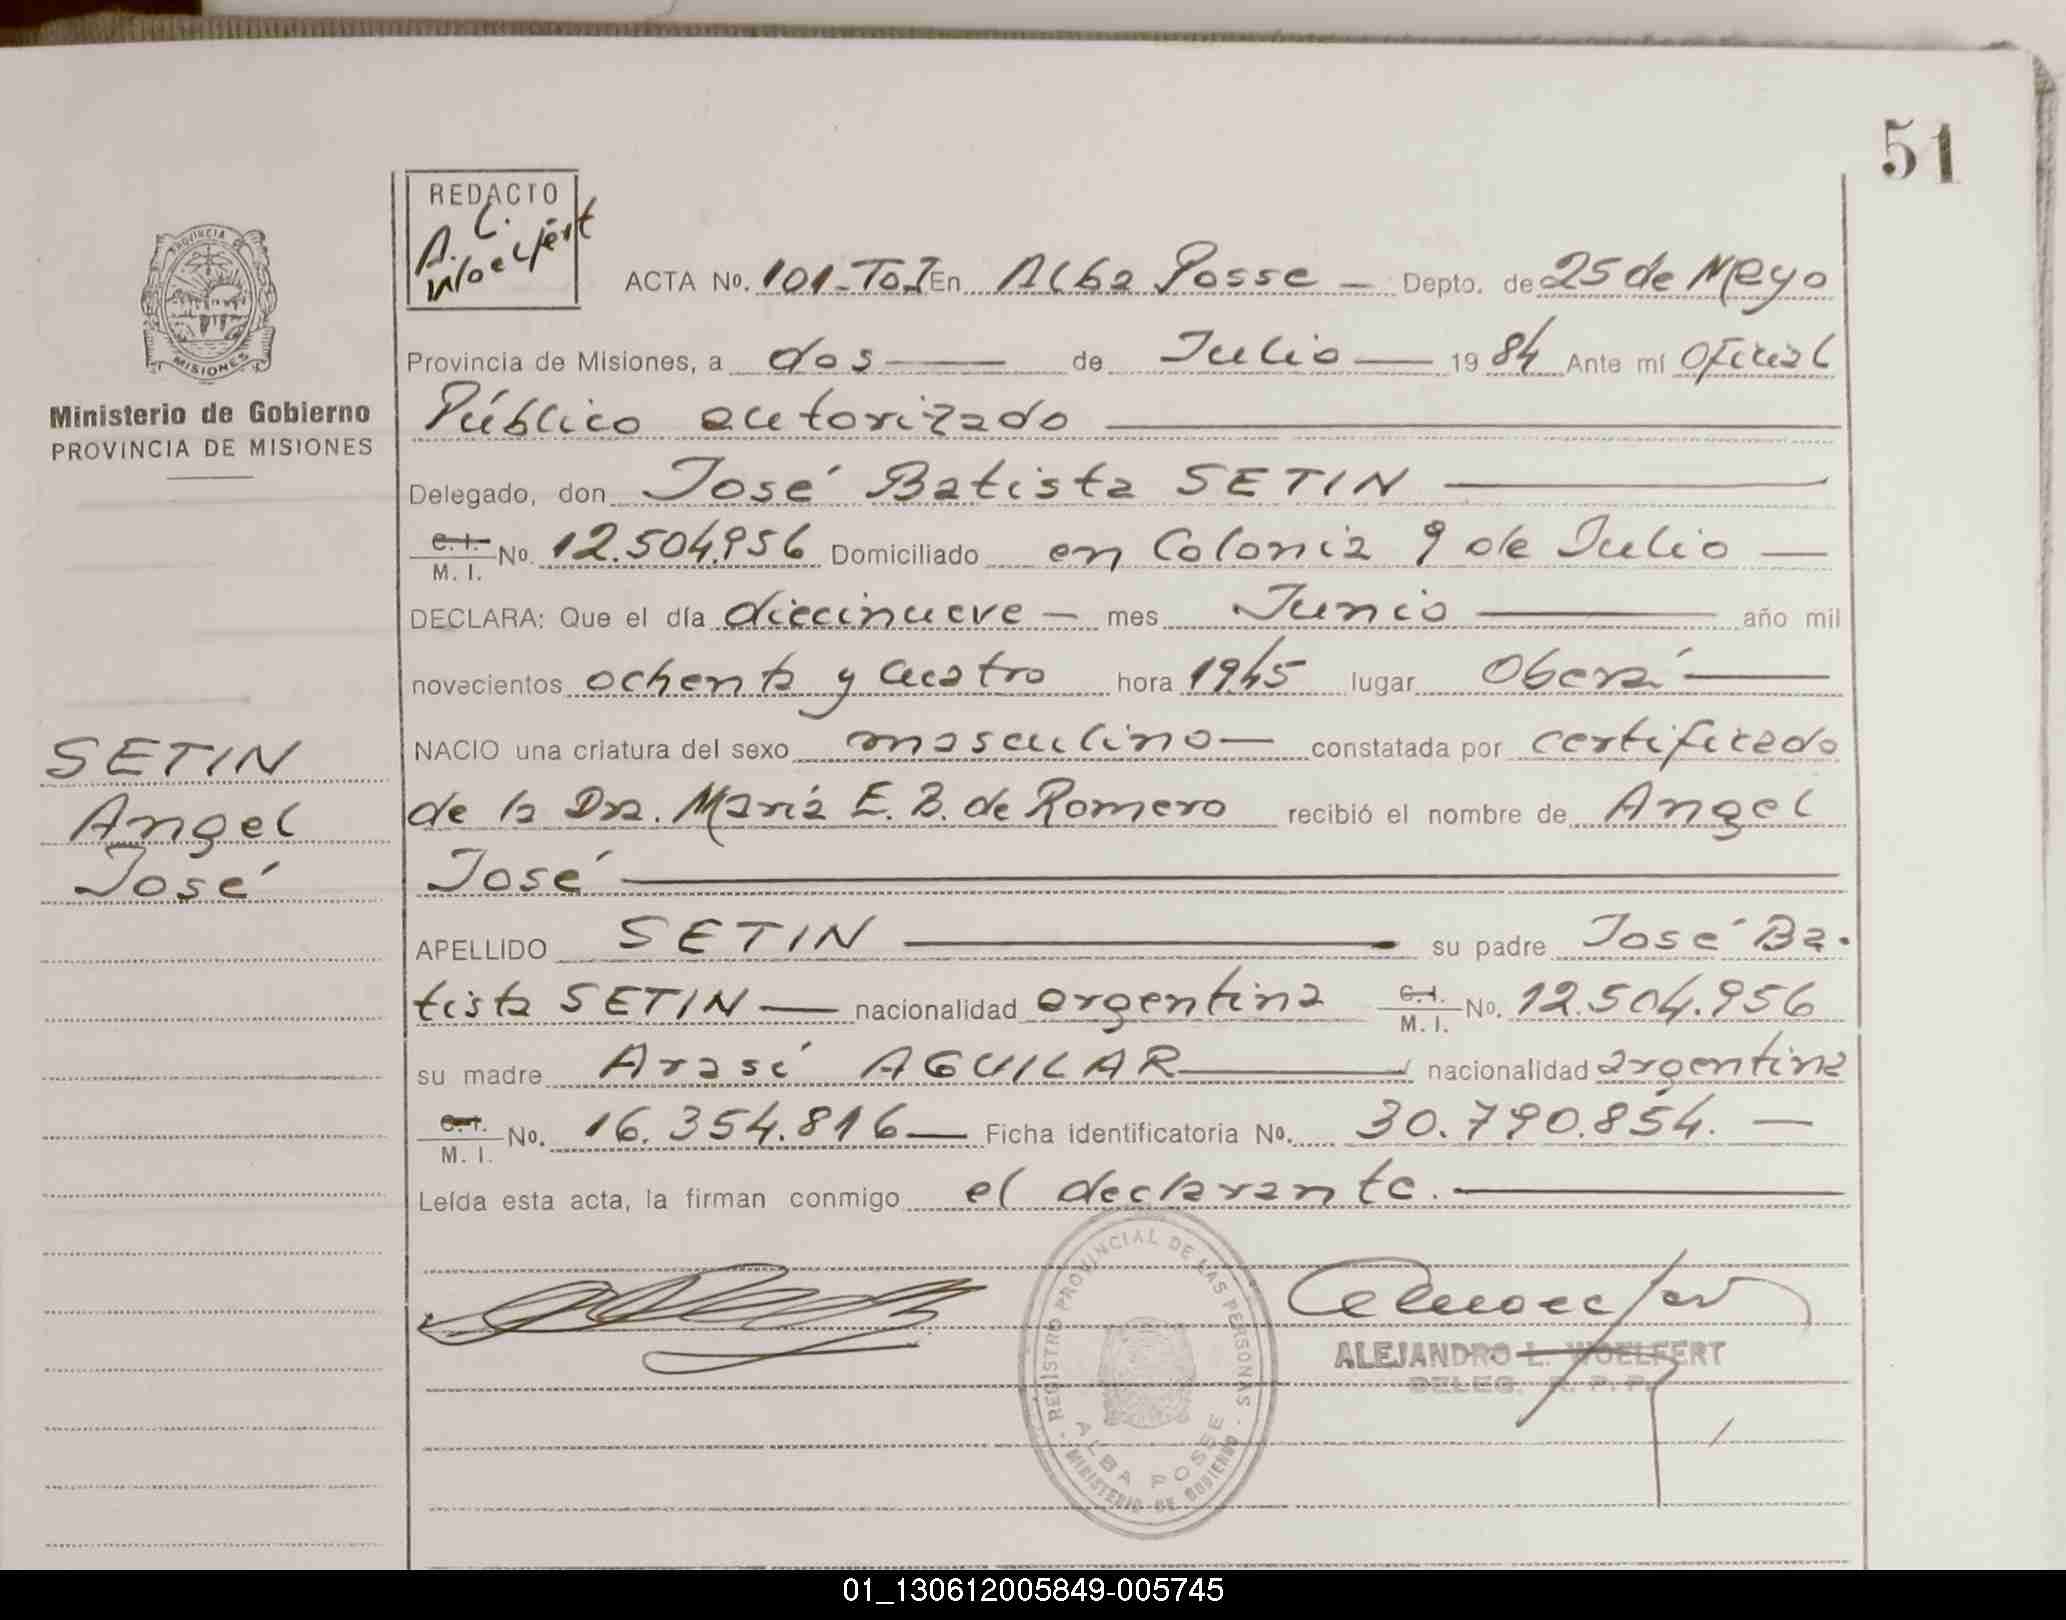 51
REDACTO
A. L. Woelfert
PROVINCIA DE
MISIONES
Ministerio de Gobierno
PROVINCIA DE MISIONES
ACTA No. 101-ToI En Alba Posse — Depto. de 25 de Mayo
Provincia de Misiones, a dos — de Julio — 19 84 Ante mí Oficial
Público autorizado
Delegado, don José Batista SETIN
C. I. M. I. No. 12.504.956 Domiciliado en Colonia 9 de Julio —
DECLARA: Que el día diecinueve — mes Junio — año mil
novecientos ochenta y cuatro hora 19,45 lugar Oberá —
NACIO una criatura del sexo masculino — constatada por certificado
de la Dra. María E. B. de Romero recibió el nombre de Angel
José
SETIN
Angel
José
APELLIDO SETIN — su padre José Ba-
tista SETIN — nacionalidad argentina C. I. M. I. No. 12.504.956
su madre Arasé AGUILAR — nacionalidad argentina
C. I. M. I. No. 16.354.816 — Ficha identificatoria No. 30.790.854. —
Leída esta acta, la firman conmigo el declarante. —
REGISTRO PROVINCIAL DE LAS PERSONAS
ALBA POSSE
MINISTERIO DE GOBIERNO
ALEJANDRO L. WOELFERT
DELEG. R. P. P.
01_130612005849-005745